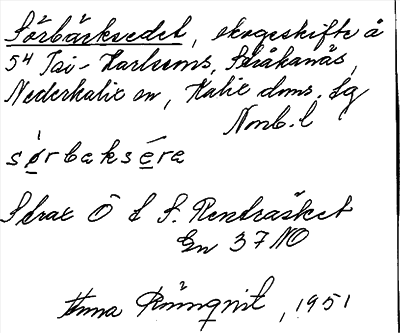 Sörbäcksedet, skogsskifte å
5⁴ Tai-Karlssons, Stråkanäs,
Nederkalix sn, Kalix doms. lg
Norrb. l
sørbaksera
Strax Ö l S. Rendträsket
En 37 NO
Anna Rönnqvist, 1951